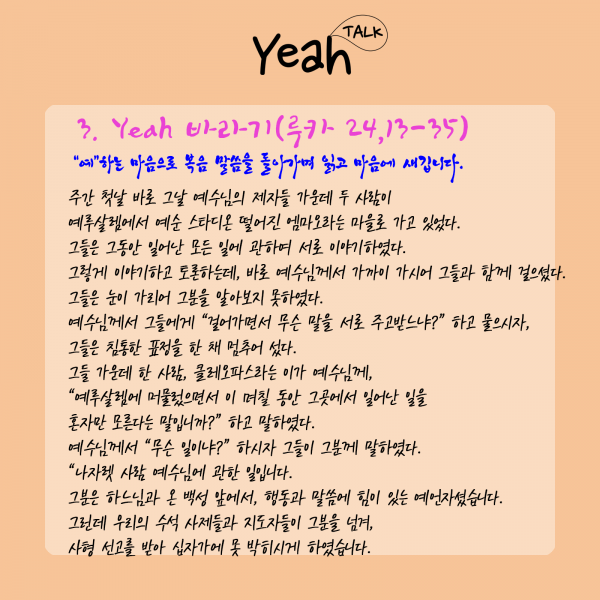 Yeah TALK
3. Yeah 바라기(루카 24,13-35)
"예"하는 마음으로 복음 말씀을 돌아가며 읽고 마음에 새깁니다.
주간 첫날 바로 그날 예수님의 제자들 가운데 두 사람이
예루살렘에서 예순 스타디온 떨어진 엠마오라는 마을로 가고 있었다.
그들은 그동안 일어난 모든 일에 관하여 서로 이야기하였다.
그렇게 이야기하고 토론하는데, 바로 예수님께서 가까이 가시어 그들과 함께 걸으셨다.
그들은 눈이 가리어 그분을 알아보지 못하였다.
예수님께서 그들에게 "걸어가면서 무슨 말을 서로 주고받느냐?" 하고 물으시자,
그들은 침통한 표정을 한 채 멈추어 섰다.
그들 가운데 한 사람, 클레오파스라는 이가 예수님께,
"예루살렘에 머물렀으면서 이 며칠 동안 그곳에서 일어난 일을
혼자만 모른다는 말입니까?" 하고 말하였다.
예수님께서 "무슨 일이냐?" 하시자 그들이 그분께 말하였다.
"나자렛 사람 예수님에 관한 일입니다.
그분은 하느님과 온 백성 앞에서, 행동과 말씀에 힘이 있는 예언자셨습니다.
그런데 우리의 수석 사제들과 지도자들이 그분을 넘겨,
사형 선고를 받아 십자가에 못 박히시게 하였습니다.